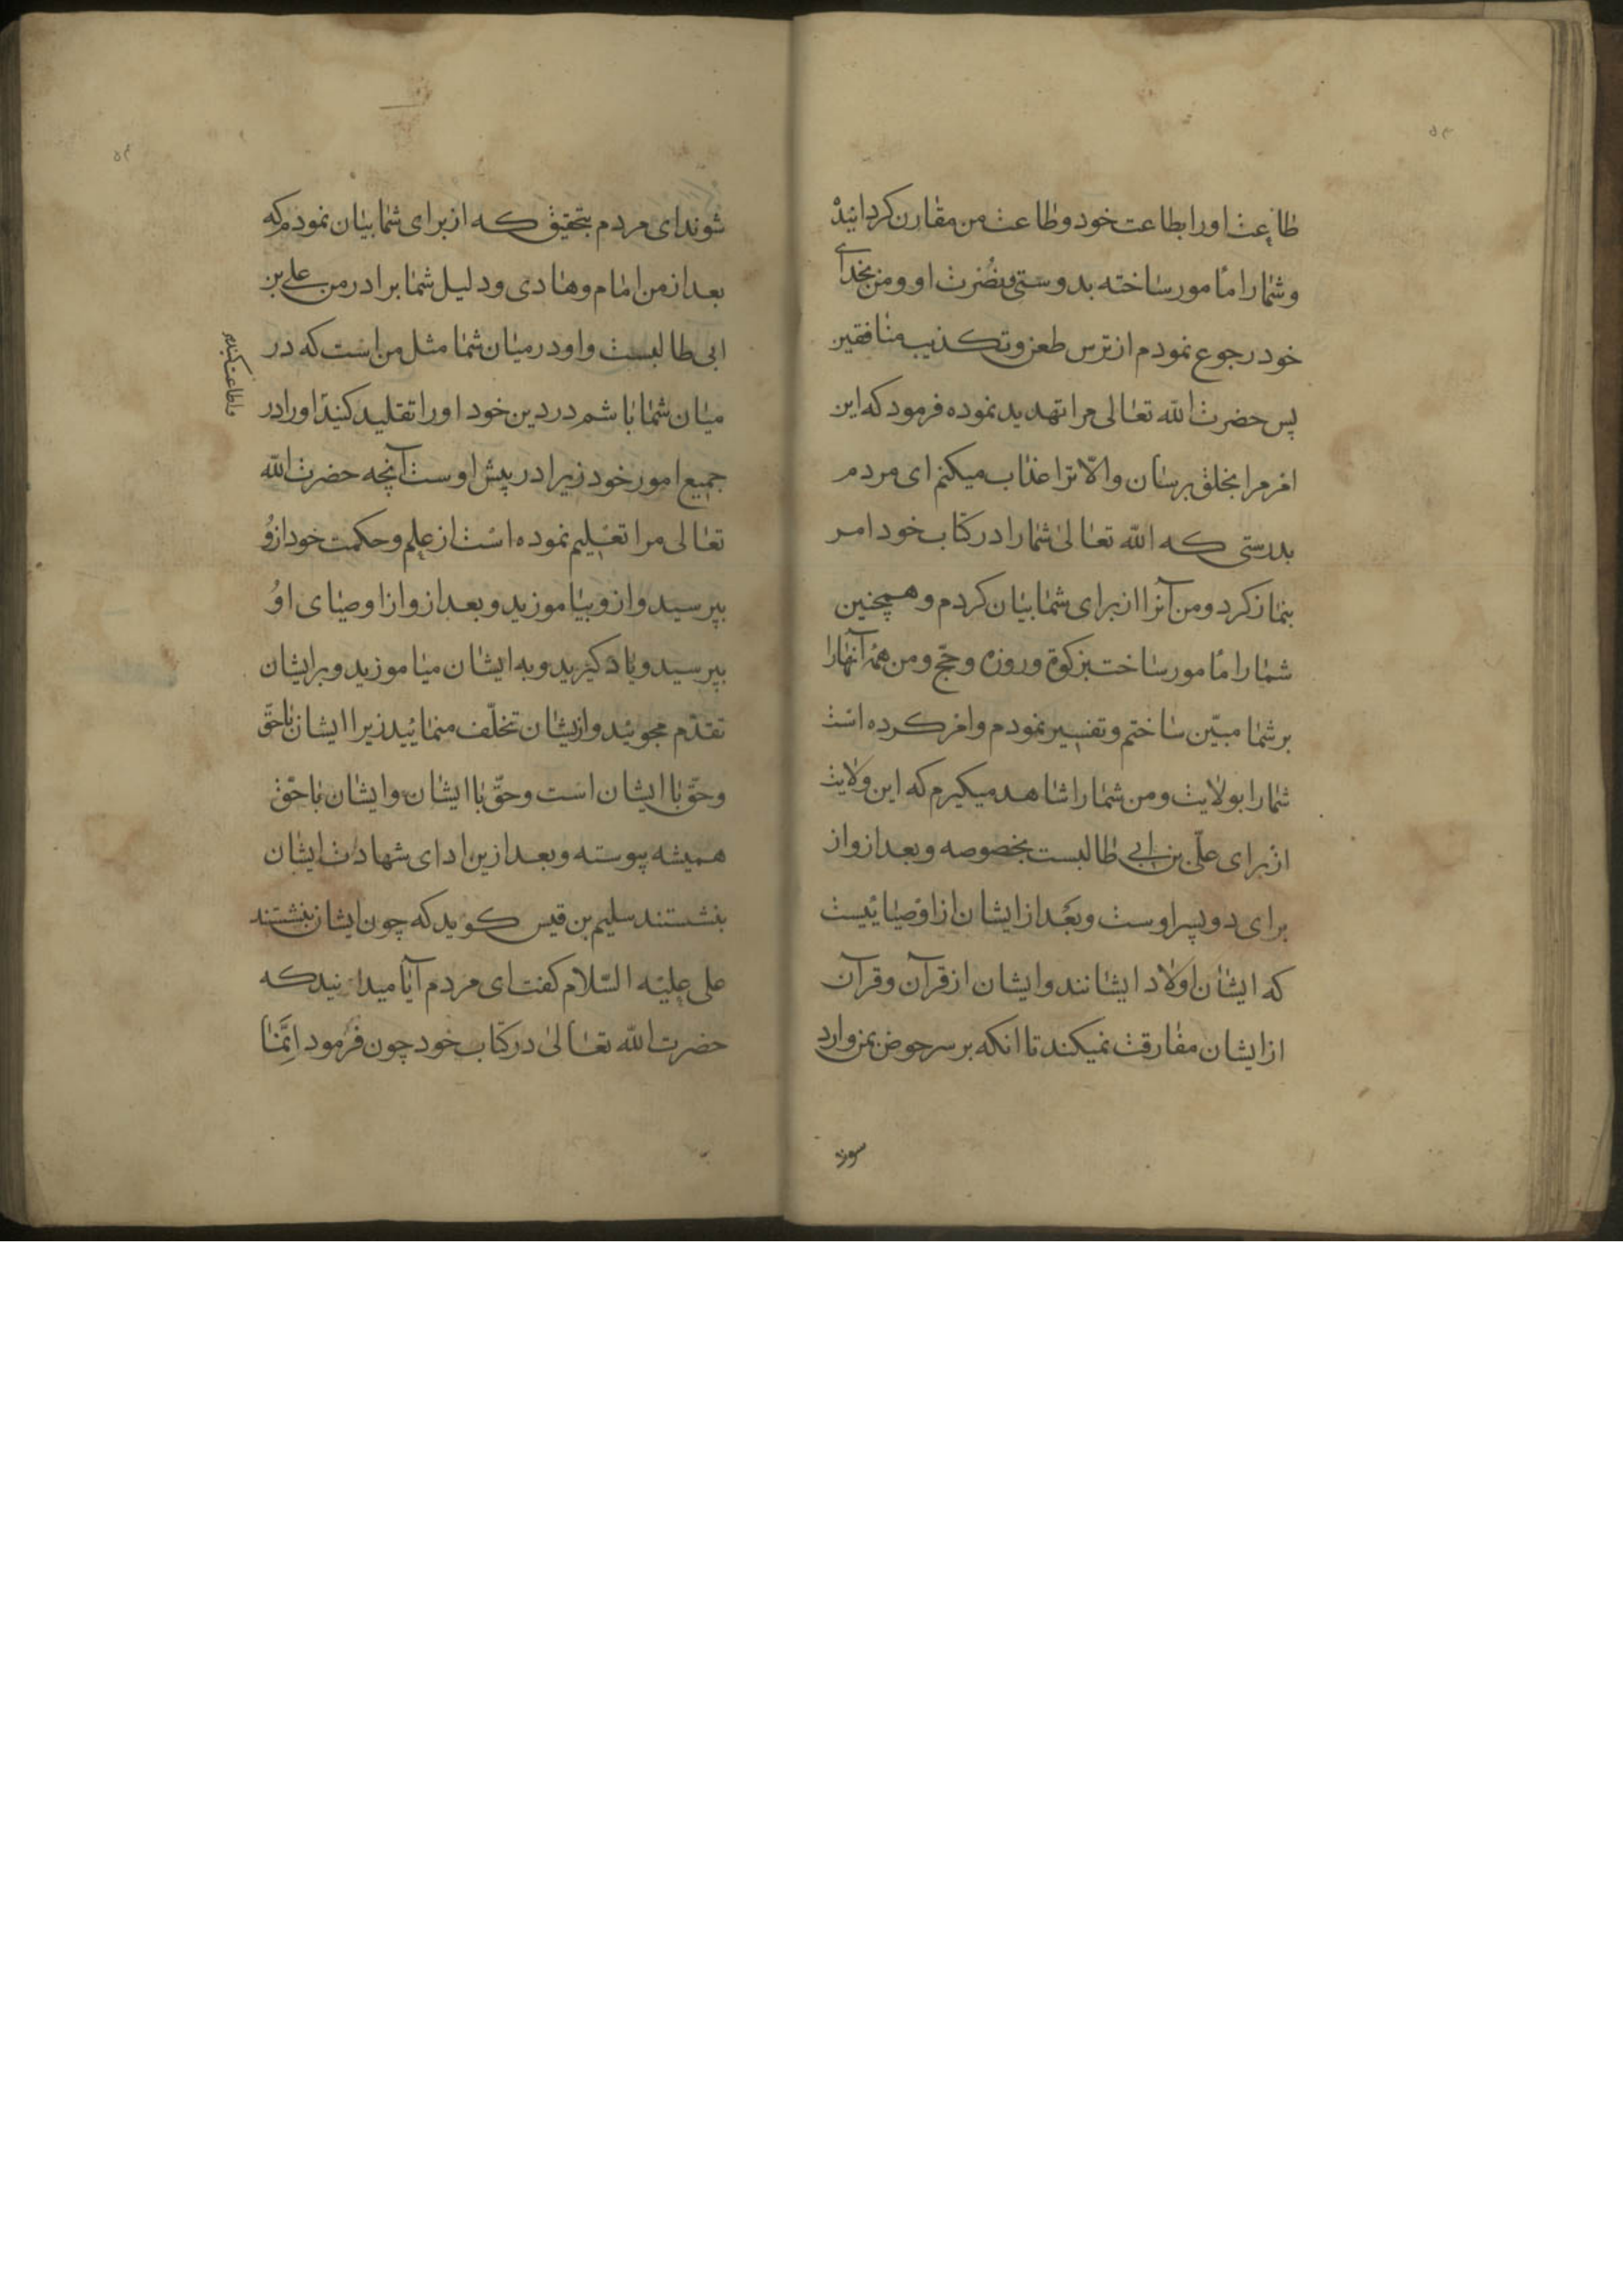 ۵۳
طاعت اورا بطاعت خود و طاعت من مقارن کردانیده
و شما را مأمور ساخته بدوستی و نصرت او و من بخدای
خود رجوع نمودم از ترس طعن و تکذیب منافقین
پس حضرت الله تعالی مرا تهدید نموده فرمود که این
امر مرا بخلق برسان و الا ترا عذاب میکنم ای مردم
بدرستی که الله تعالی شما را در کتاب خود امر
بنماز کرد و من آنرا از برای شما بیان کردم و همچنین
شما را مأمور ساخت بزکوة و روزه و حج و من همه آنها را
بر شما مبین ساختم و تفسیر نمودم و امر کرده است
شما را بولایت و من شما را شاهد میکیرم که این ولایت
از برای علی بن ابی طالبست بخصوصه و بعد ازو از
برای دو پسر اوست و بعد از ایشان از اوصیائیست
که ایشان اولاد ایشانند و ایشان از قرآن و قرآن
از ایشان مفارقت نمیکند تا انکه بر سر حوض بمن وارد
شوند
شوند ای مردم بتحقیق که از برای شما بیان نمودم که
بعد از من امام و هادی و دلیل شما برادر من علی بن
ابی طالبست و او در میان شما مثل من است که در
میان شما باشم در دین خود او را تقلید کنید او را در
جمیع امور خود زیرا در پیش اوست آنچه حضرت الله
تعالی مرا تعلیم نموده است از علم و حکمت خود ازو
بپرسید و ازو بیاموزید و بعد ازو از اوصیای او
بپرسید و یاد کیرید و به ایشان میاموزید و بر ایشان
تقدم مجوئید و ازیشان تخلف منمائید زیرا ایشان با حق
و حق با ایشان است و حق با ایشان و ایشان با حق
همیشه پیوسته و بعد ازین ادای شهادت ایشان
بنشستند سلیم بن قیس کوید که چون ایشان بنشستند
علی علیه السلام کفت ای مردم آیا میدانید که
حضرت الله تعالی در کتاب خود چون فرمود اِنَّمَا